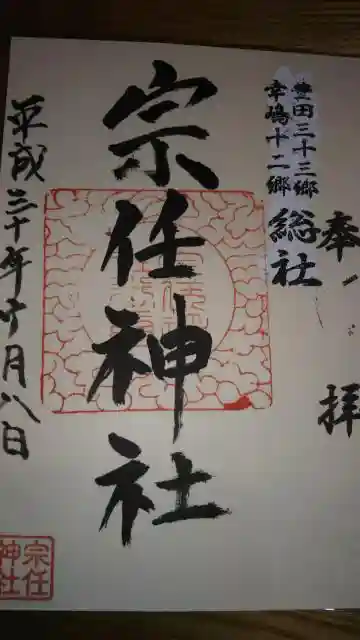 奉
拝
豊田三十三郷
幸嶋十二郷
総社
宗任神社
平成三十年十月八日
宗任
神社